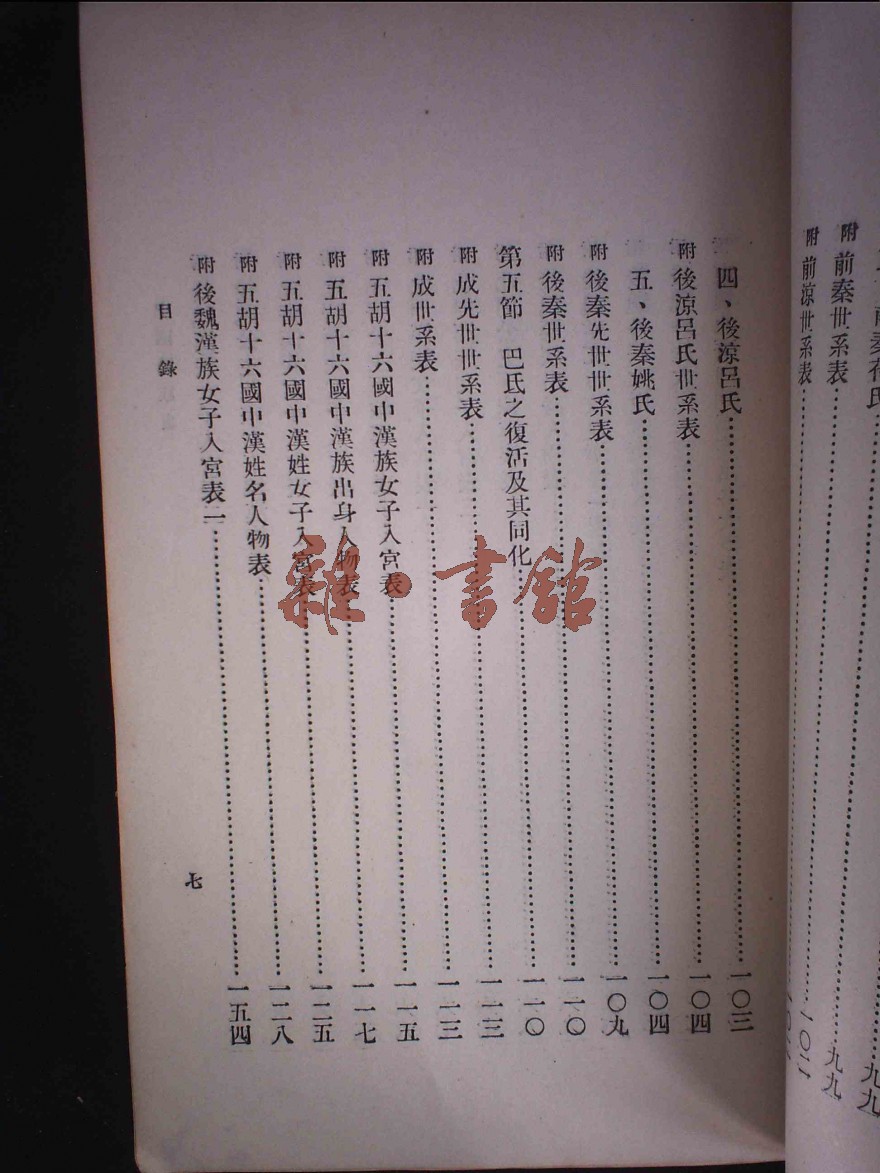 前秦苻氏……九九
附 前秦世系表……九九
附 前涼世系表……
四、後涼呂氏……一〇三
附 後涼呂氏世系表……一〇四
五、後秦姚氏……一〇四
附 後秦先世世系表……一〇九
附 後秦世系表……一一〇
第五節 巴氏之復活及其同化……一一〇
附 成先世世系表……一一三
附 成世系表……一一三
附 五胡十六國中漢族女子入宮表……一一五
附 五胡十六國中漢族出身人物表……一一七
附 五胡十六國中漢姓女子入宮表……一二五
附 五胡十六國中漢姓名人物表……一二八
附 後魏漢族女子入宮表二……一五四
目錄
七
雜·書館